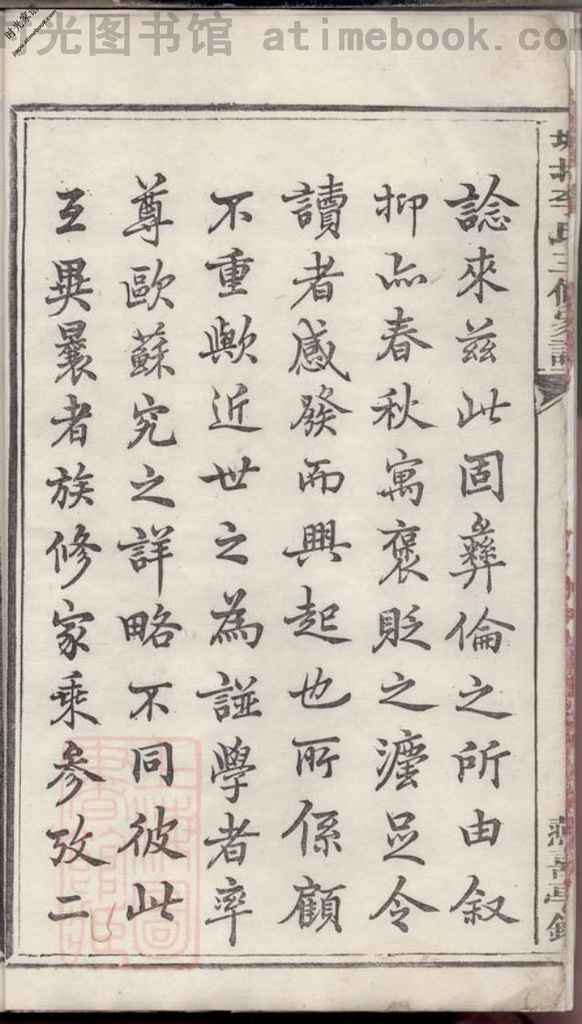 光图书馆 atimebook.com
諗來茲此固彝倫之所由叙
抑亦春秋寓褒貶之灋足令
讀者感發而興起也所係顧
不重歟近世之為諩學者率
尊歐蘇究之詳略不同彼此
互異曩者族修家乘參攷二
李氏三修家譜